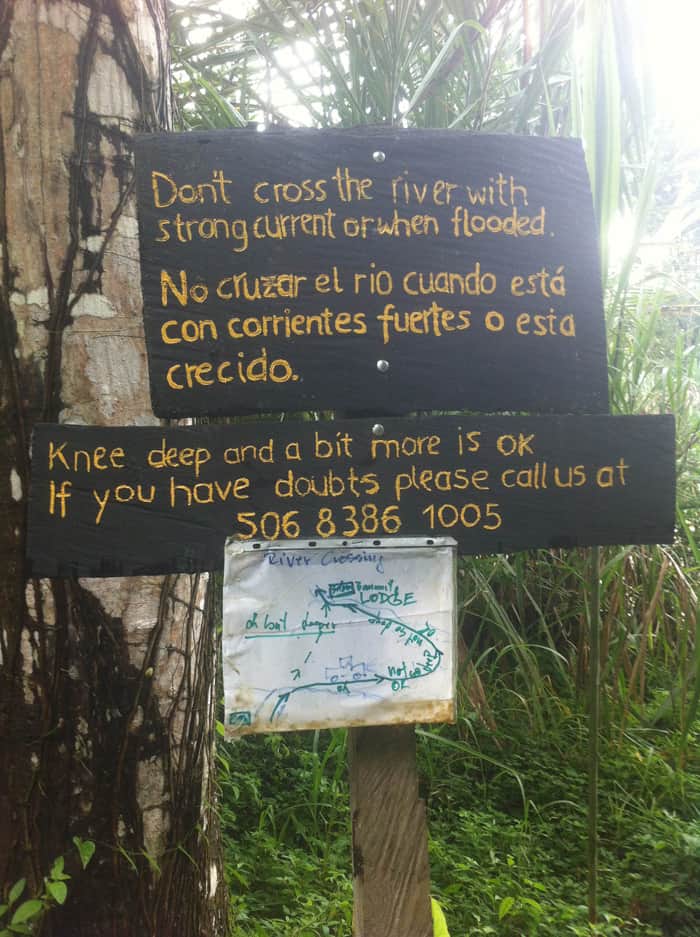 Don't cross the river with
strong current or when flooded.
No cruzar el rio cuando está
con corrientes fuertes o esta
crecido.
Knee deep and a bit more is OK
If you have doubts please call us at
506 8386 1005
River Crossing
LODGE
ok but deeper
not so deep
not
ok
OK